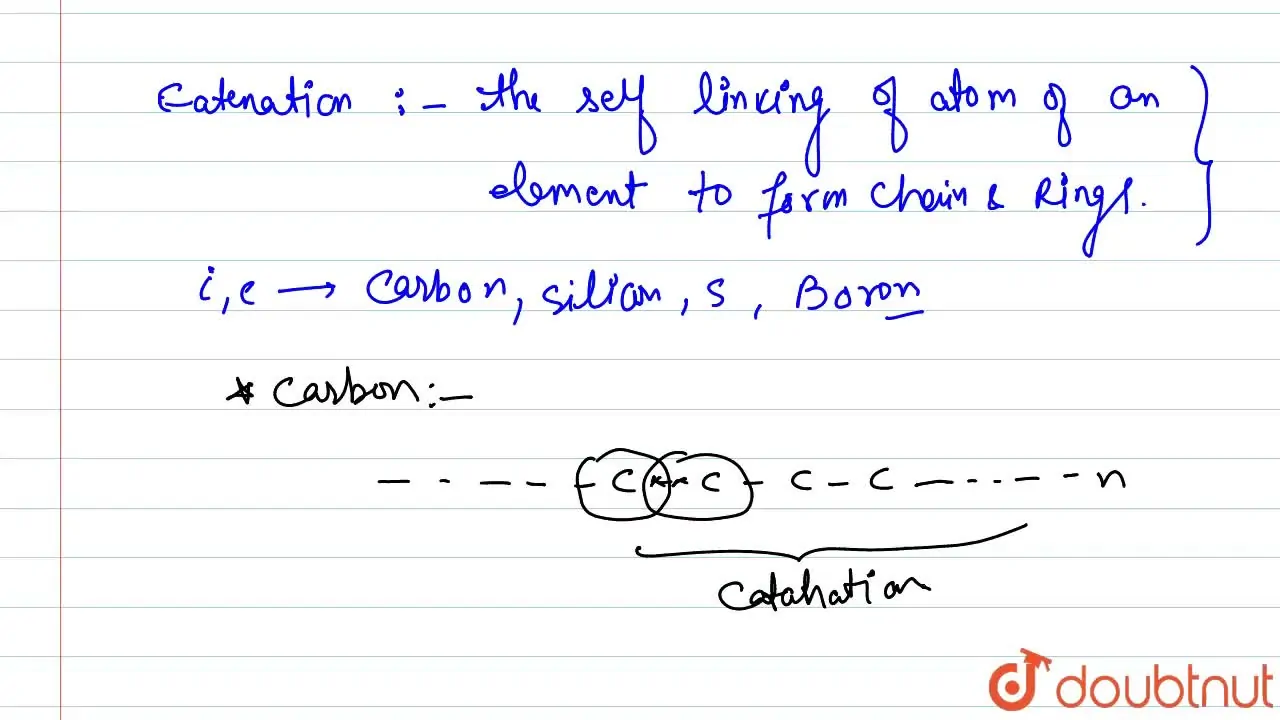 Catenation :- the self linking of atom of an
element to form chain & Rings.
i,e → Carbon, Silion, S, Boron
* Carbon:-
- - - - - C - C - C - C - - - - - n
Catahation
doubtnut